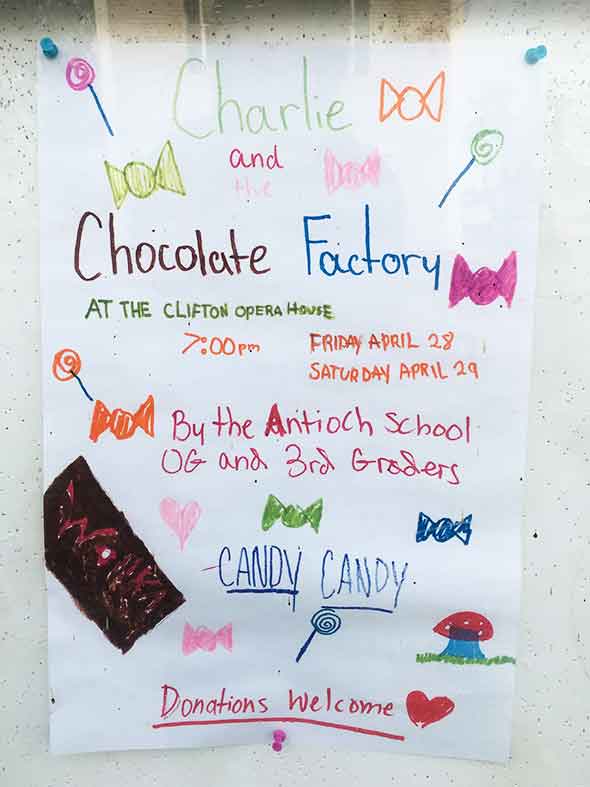 Charlie
and
the
Chocolate Factory
AT THE CLIFTON OPERA HOUSE
7:00pm FRIDAY APRIL 28
SATURDAY APRIL 29
By the Antioch School
OG and 3rd Graders
Wonka
CANDY CANDY
Donations Welcome